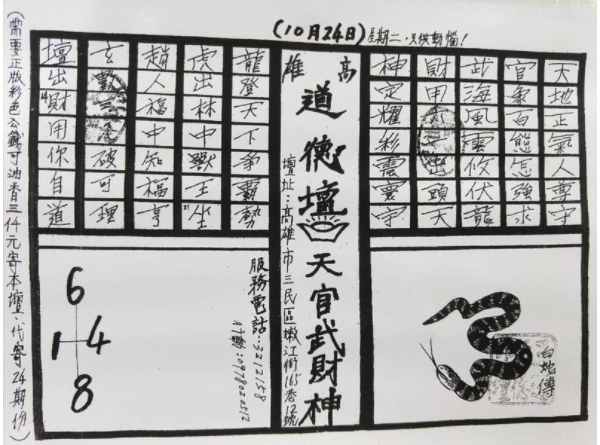 (10月24日) 星期二
高雄
道德壇 天官武財神
壇址：高雄市三民區嫩江街165巷12號
天地正氣人尊守
官象百態怎強求
武海風雲攸伏龍
財甲出頭天
神定耀彩震寰宇
龍登天下爭霸勢
虎出林中獸王坐
趙人福中知福享
玄數破可理
壇出財用你自道
白蛇傳
服務電話:3212158
行動:0978020512
6
1 4
8
(需要正版彩色公籤可油香三仟元寄本壇、代寄24期份)